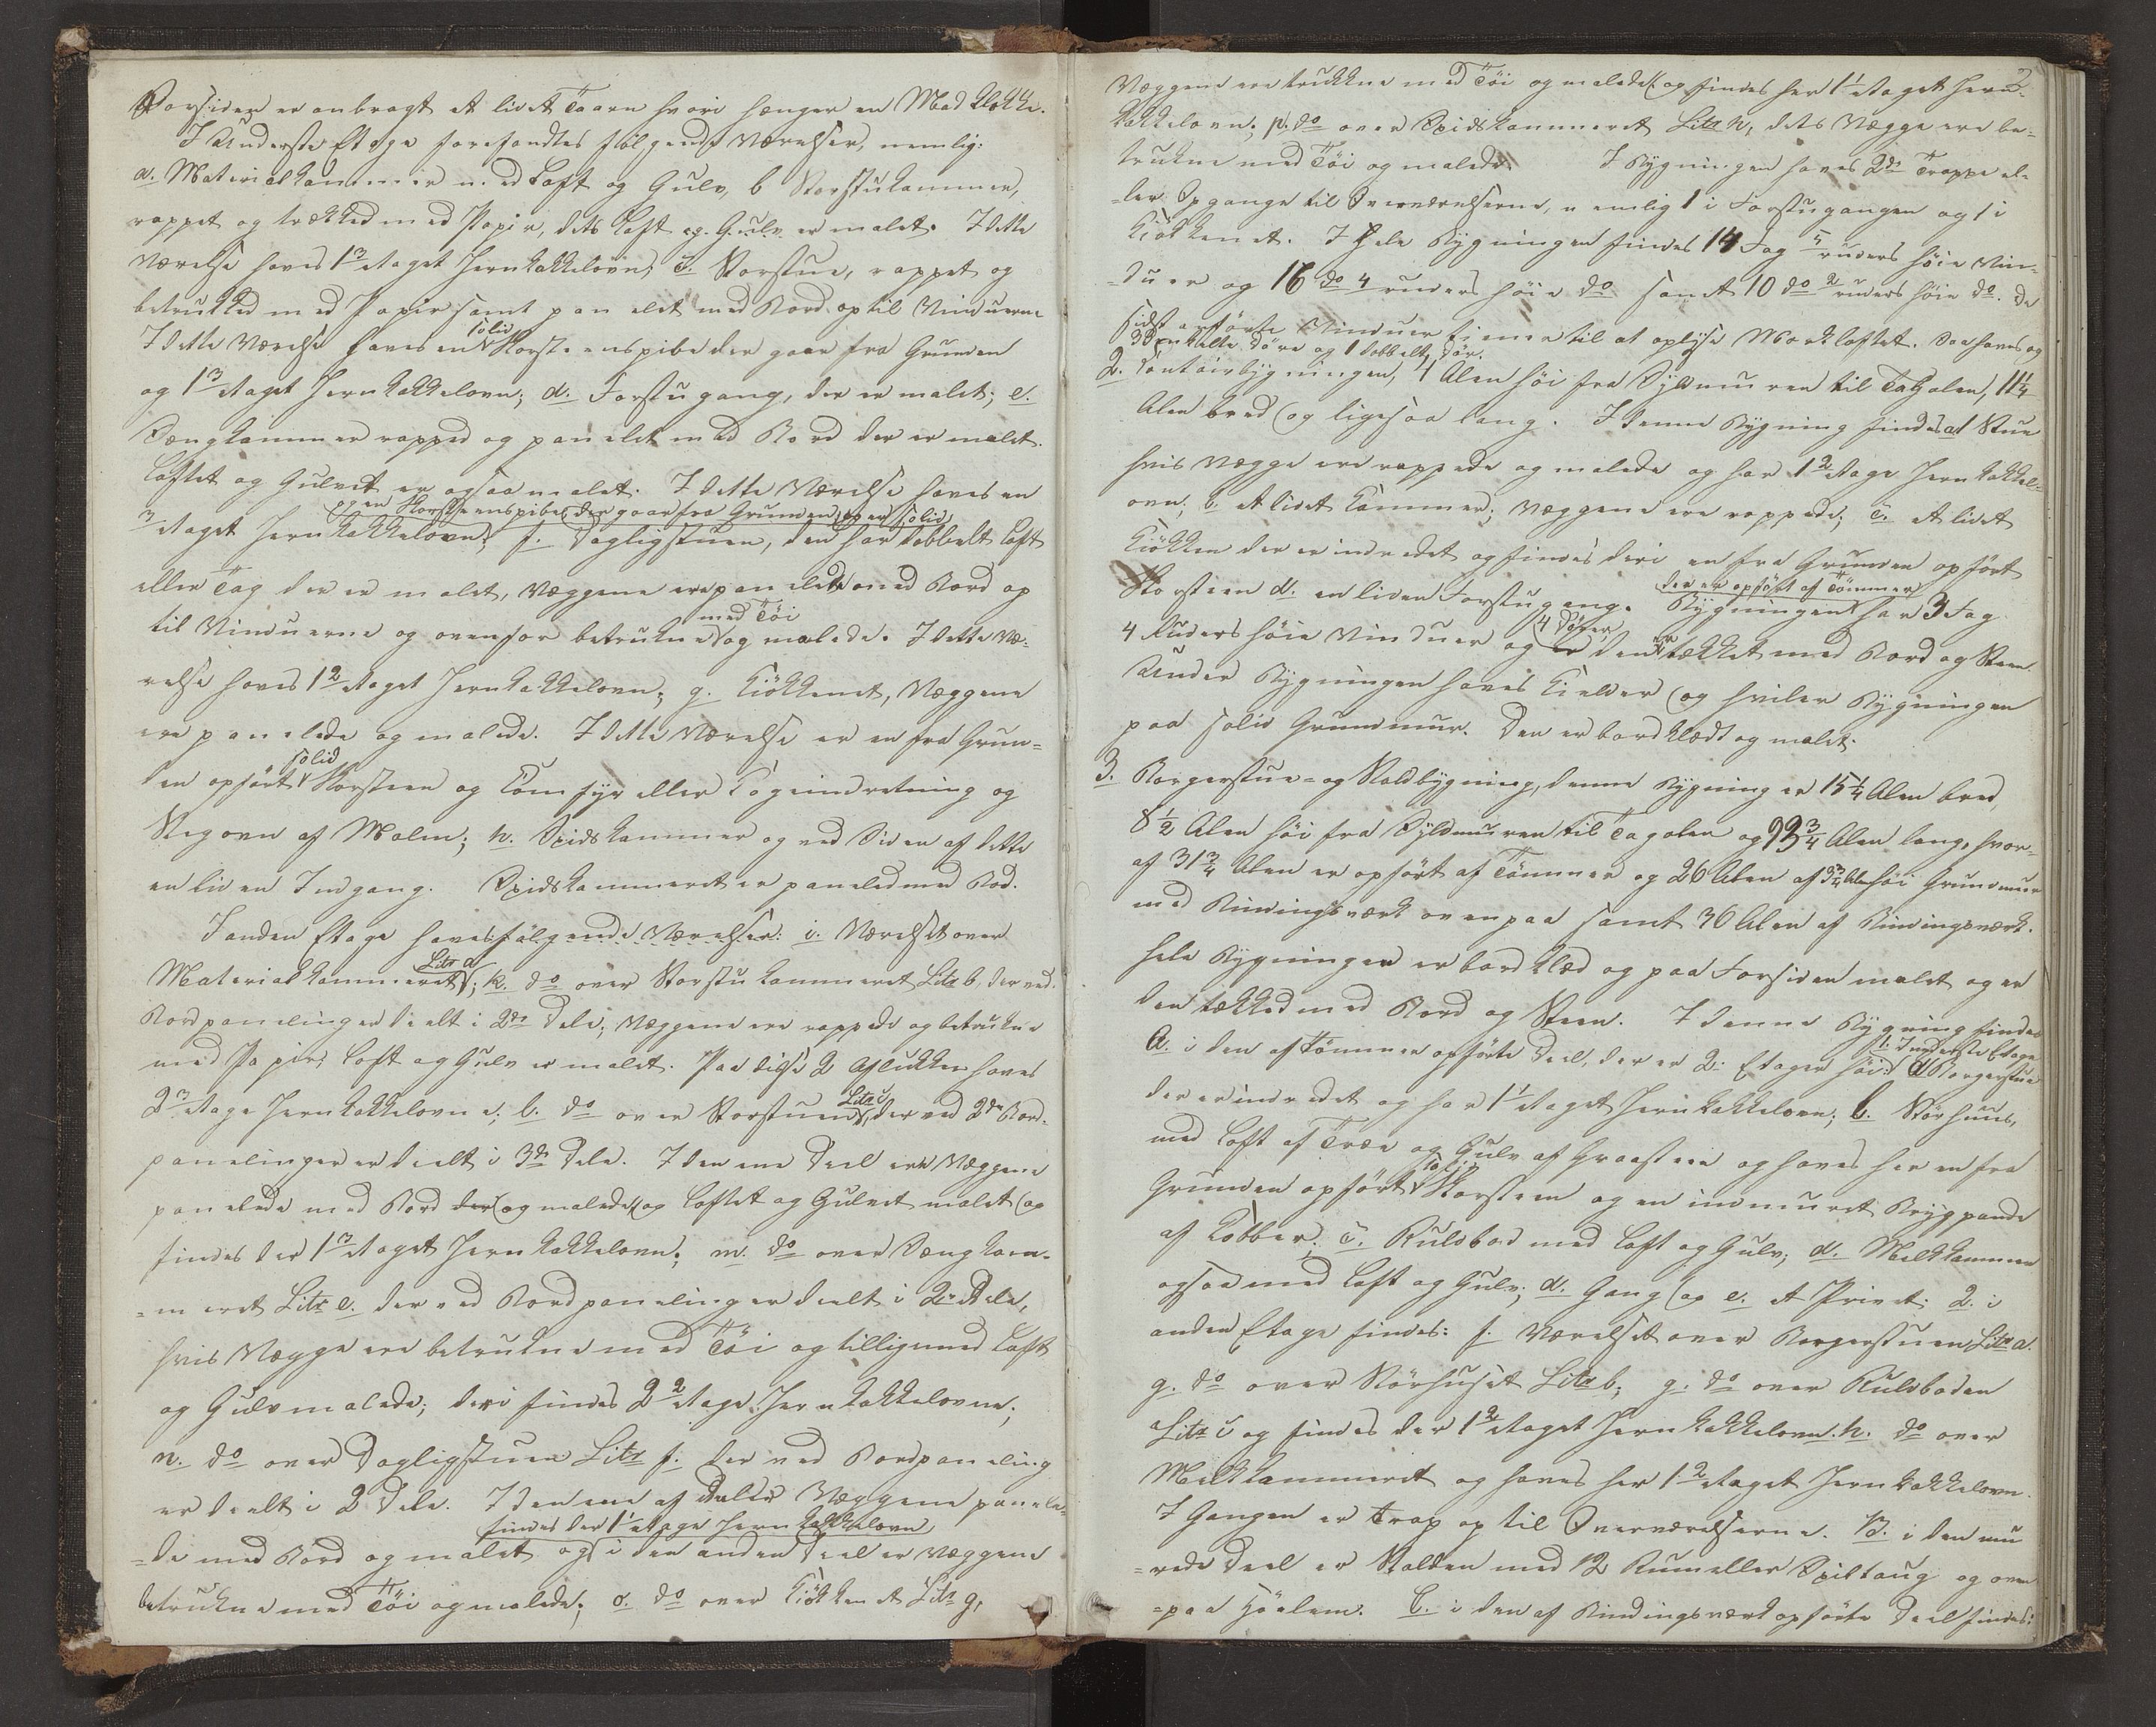 Forsiden er anbragt et lidet Taarn hvori hænger en Madklokke.
I Underste Etage forefandtes følgende Værelser, nemlig:
a. Materialkammer med Loft og Gulv, b Storstukammer,
rappet og trækked med Papir, dets Loft og Gulv er malet. I dette
Værelse haves 1 3 etaget Jernkakkelovn; c. Storstue, rappet og
betrukked med Papir samt panelet med Bord op til Vinduerne
I dette Værelse haves en solid Skorsteenspibe der gaar fra Grunden
og 1 3 etaget Jernkakkelovn; d. Forstugang, der er malet; e.
Sængkammer rapped og panelet med Bord der er malet.
Loftet og Gulvet er ogsaa malet. I dette Værelse haves en
og en Skorsteenspibe, der gaar fra Grunden og er solid
3 etaget Jernkakkelovn; f. Dagligstuen, den har dobbelt Loft
eller Tag der er malet, Væggene ere panelede med Bord op
til Vinduerne og ovenfor betrukne med Töi og malede. I dette Væ-
relse haves 1 2 etaget Jernkakkelovn; g. Kiökkenet, Væggene
ere panelede og malede. I dette Værelse er en fra Grun-
den opfört solid Skorsteen og Komfyr eller Kogeindretning og
Stegovn af Malm; h. Spidskammer og ved Siden af dette
en liden Indgang. Spidskammeret er paneled med Bod.
I anden Etage haves følgende Værelser: i. Værelset over
Materialkammeret Litr a; k. do over Storstukammeret Litr b, der ved
Bordpanelinger deelt i 2de Dele, Væggene ere rappede og betrukne
med Papir, Loft og Gulv er malet. Paa disse 2 Aflukker haves
2 3 etage Jernkakkelovne; l. do over Storstuen Litr c, der ved 2de Bord-
panelinger er deelt i 3de Dele. I den ene Deel ere Væggene
panelede med Bord der og malede og Loftet og Gulvet malet og
findes der 1 3 etaget Jernkakkelovn; m. do over Sængkam-
=meret Litr e. der ved Bordpaneling er deelt i 2de Dele,
hvis Vægge ere betrukne med Töi og tilligemed Loft
og Gulv malede; deri findes 2 2 etage Jernkakkelovne;
n. do over Dagligstuen Litr f. der ved Bordpaneling
er deelt i 2 Dele. I den ene af Dele er Væggene panele-
findes der 1 1 etage Jernkakkelovn
=de med Bord og malet og i den anden Deel er Væggene
betrukne med Töi og malede; o. do over Kiökkenet Litr g,
2
Væggene ere trukkne med Töi og malede og findes her 1 1 etaget Jern-
kakkelovn; p. do over Spidskammeret Litr h, dets Vægge ere be-
trukne med Töi og malede. I Bygningen haves 2de Trappe el-
=ler Opgange til Overværelserne, nemlig 1 i Forstugangen og 1 i
Kiökkenet. I Hele Bygningen findes 14 Fag 5 ruders höie Vin-
=duer og 16 do 4 ruders höie do samt 10 do 2 ruders höie do. De
sidst anförte Vinduer tiene til at oplyse Mørkloftet. Saa haves og
3 Enkelte Döre og 1 dobbelt Dör.
2. Contoirbygningen, 4 Alen höi fra Syldmuren til Taghalen, 11 1/4
Alen bred og ligesaa lang. I denne Bygning findes a 1 Stue
hvis Vægge ere rappede og malede og har 1 2 etage Jernkakkel-
ovn, b. et lidet Kammer; Væggene ere rappede; c. et lidet
Kiökken der er indredet og findes deri en fra Grunden opfört
Skorsteen d. en liden Forstugang. Bygningen der er opfört af Tömmer har 3 Fag
4 Ruders höie Vinduer og 4 Dörer den er tækket med Bord og Steen.
Under Bygningen haves Kielder og hviler Bygningen
paa solid Grundmur. Den er bordklædt og malet.
3. Borgerstue- og Staldbygning, denne Bygning er 15 1/4 Alen bred,
8 1/2 Alen höi fra Syldmuren til Tagalen og 93 3/4 Alen lang, hvor-
af 31 3/4 Alen er opfört af Tömmer og 26 Alen af 3 3/4 Alen höi Grundmuur
med Bindingsværk ovenpaa samt 36 Alen af Bindingsværk.
Hele Bygningen er bordklæd og paa Forsiden malet og er
den tækked med Bord og Steen. I denne Bygning findes
A. i den af Tömmer opförte Deel, der er 2. Etager höi: 1. I underste Etage a Borgerstue
der er indredet og har 1 1 etaget Jernkakkelovn; b. Störhuus,
med Loft af Træe og Gulv af Graasteen og haves her en fra
Grunden opfört solid Skorsteen og en indmuret Bryggpande
af Kobber; c. Rulebod med Loft og Gulv; d. Melkkammer
ogsaa med Loft og Gulv; d. Gang og e. et Privet; 2. i
anden Etage findes: f. Værelset over Borgerstuen Litr a.
g. do over Störhuset Litr b; g. do over Rulboden
Litr c og findes der 1 2 etaget Jernkakkelovn. h. do over
Melkkammeret og haves her 1 2 etaget Jernkakkelovn.
I Gangen er Trap op til Overværelserne. B. i den mu
=rede Deel er Stalden med 12 Rum eller Spiltaug og oven
=paa Höelem. C. i den af Bindingsværk opförte Deel findes: